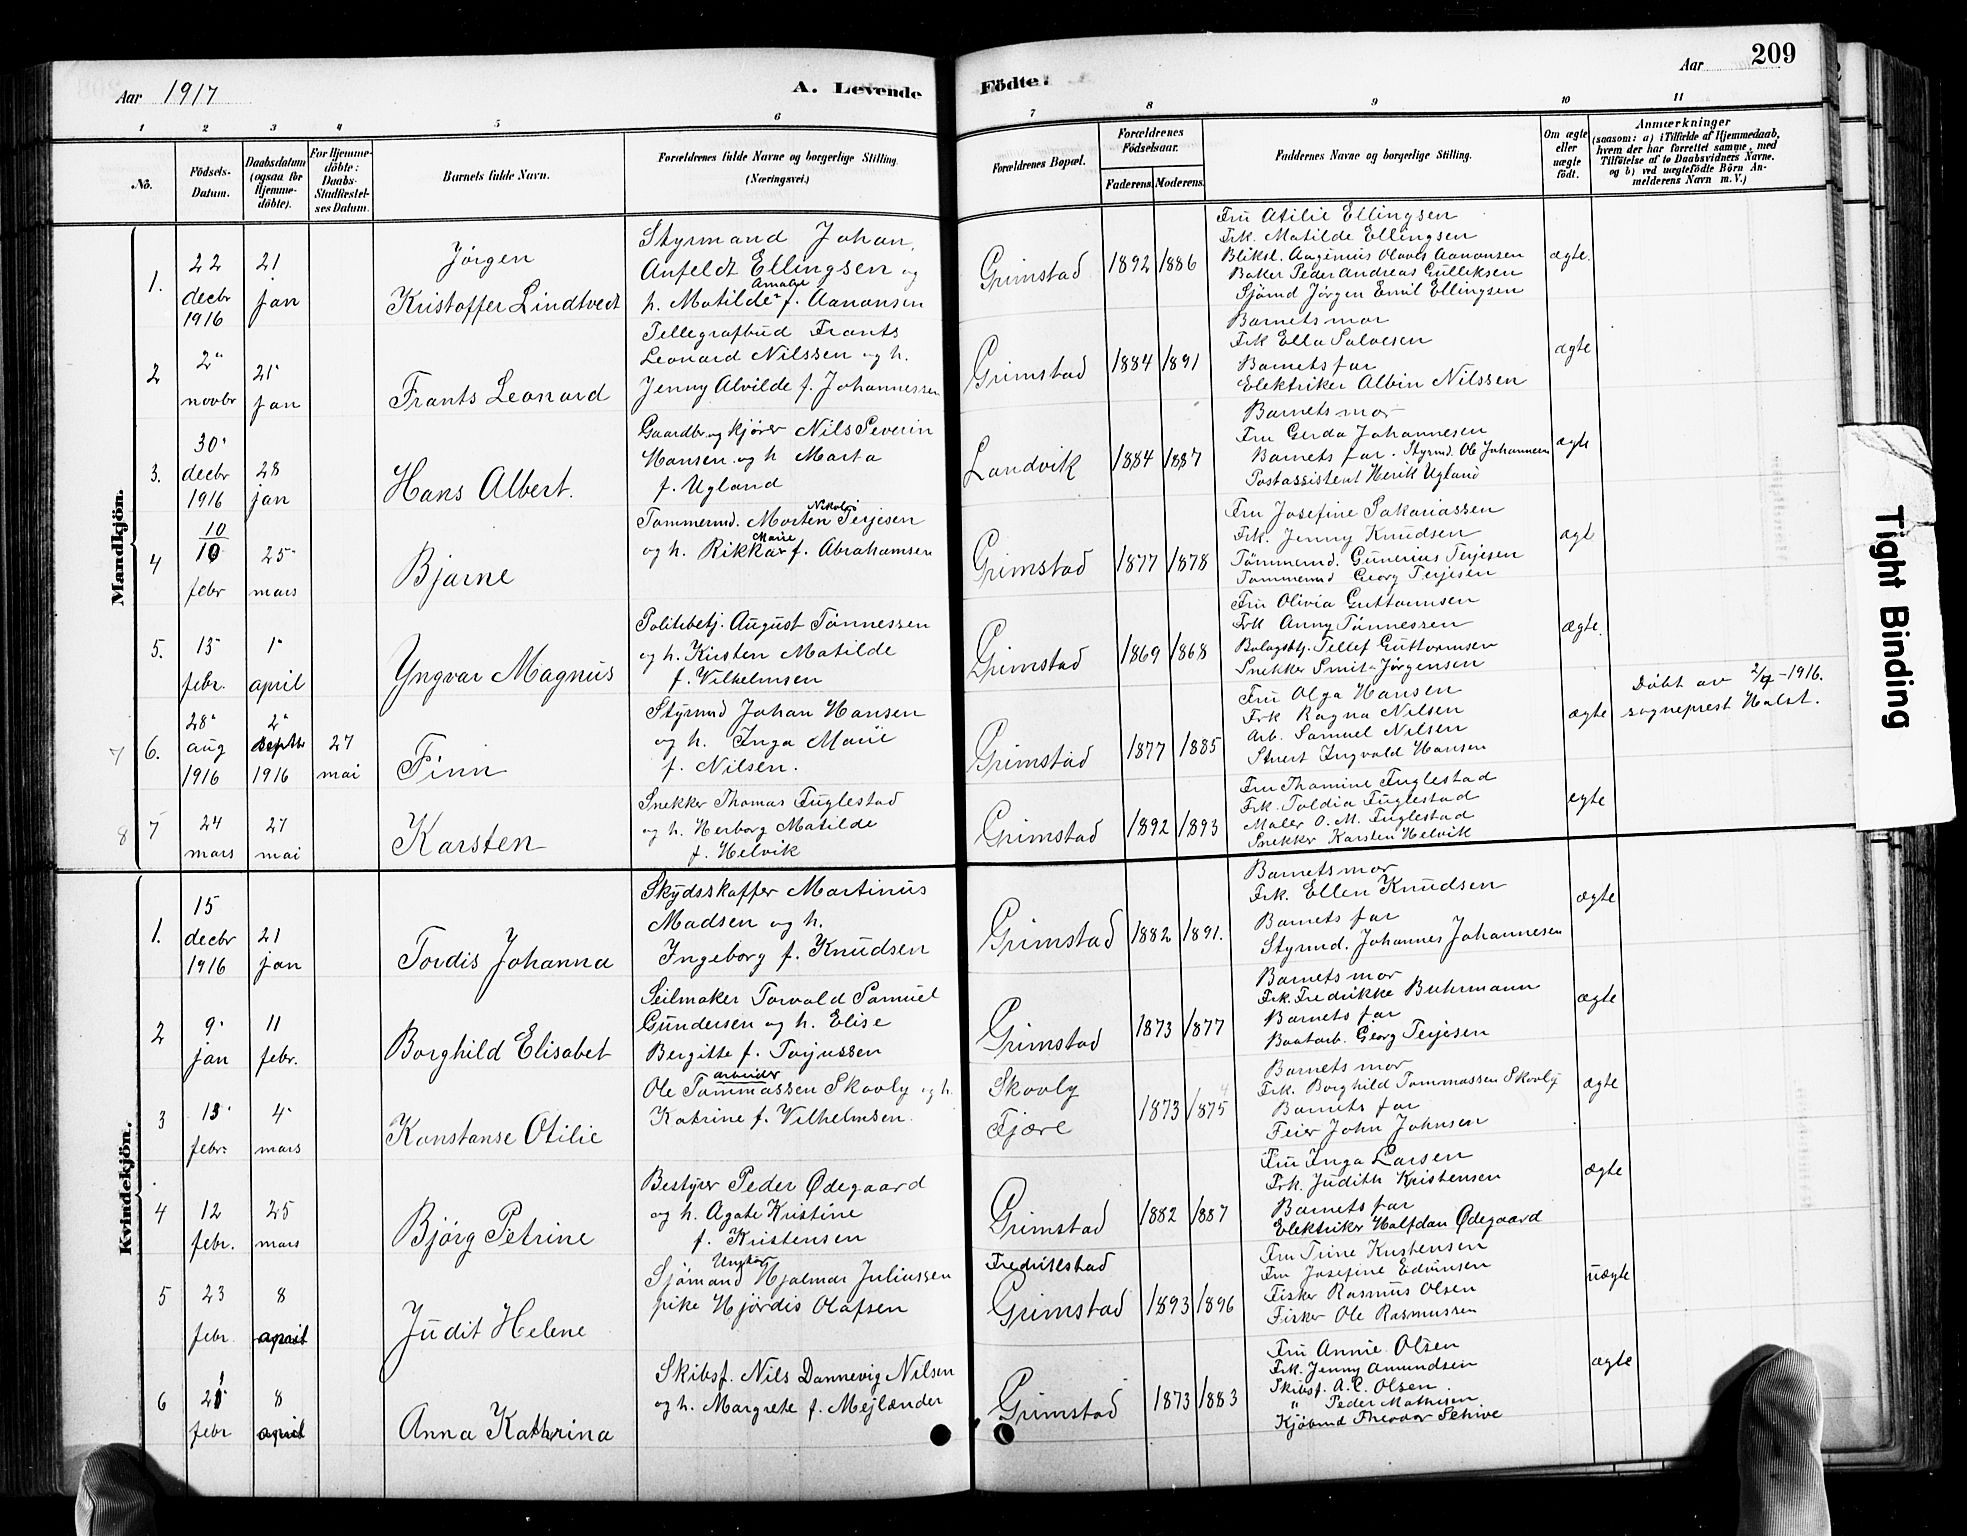 Aar 1917
A. Levende Födte.
Aar 209
1 2 3 4 5 6 7 8 9 10 11
No.
Födsels-Datum.
Daabsdatum (ogsaa for Hjemme-döbte).
For Hjemme-döbte: Daabs-Stadfæstel-ses Datum.
Barnets fulde Navn.
Forældrenes fulde Navne og borgerlige Stilling. (Næringsvei.)
Forældrenes Bopæl.
Forældrenes Födselsaar.
Faderens. Moderens.
Faddernes Navne og borgerlige Stilling.
Om ægte eller uægte født.
Anmærkninger
(saasom: a) i Tilfælde af Hjemmedaab, hvem der har forrettet samme, med Tilföielse af to Daabsvidners Navne. og b) ved uægtefödte Börn An-melderens Navn m. V.)
Mandkjön.
1. 22 decbr 1916
21 jan
Jørgen
Kristoffer Lindtvedt
Styrmand Johan
Anfeldt Ellingsen og
h. Matilde Amalie f. Aanonsen
Grimstad 1892 1886
Fru Otilie Ellingsen
Frk. Matilde Ellingsen
Blikst. Augenius Olaves Aanonsen
Baker Peder Andreas Gulliksen
Sjömd Jørgen Emil Ellingsen
ægte.
2 2 novbr
21 jan
Frants Leonard
Tellegrafbud Frants
Leonard Nilssen og h.
Jenny Alvilde f. Johannessen
Grimstad 1884 1891
Barnets mor
Frk Ella Salvesen
Barnets far
Elektriker Albin Nilssen
ægte
3. 30 decbr 1916
28 jan
Hans Albert.
Gaardbr. og kjører Nils Severin
Hansen og h Marta
f. Ugland
Landvik 1884 1887
Barnets mor
Fru Gerda Johannesen
Barnets far. Styrmd. Ole Johannesen
Postassistent Henrik Ugland
ægte
4 10 febr
25 mars
Bjarne
Tømmermd. Morten Nikolai Terjesen
og h. Rikka Marie f. Abrahamsen
Grimstad 1877 1878
Fru Josefine Sakariassen
Frk. Jenny Knudsen
Tömmermd. Gunerius Terjesen
Tømmermd Georg Terjesen
ægt
5. 15 febr.
1 april
Yngvar Magnus
Politibetj. August Tønnessen
og h. Kirsten Matilde
f. Vilhelmsen
Grimstad 1869 1868
Fru Olivia Guttormsen
Frk Anny Tønnessen
Bolagsbtj. Tellef Guttormsen
Snekker Smit-Jørgensen
ægte.
7 6. 28 aug 1916
2 septbr 1916
27 mai
Finn
Styrmd Johan Hansen
og h. Inga Marie
f. Nilsen.
Grimstad 1877 1885
Fru Olga Hansen
Frk Ragna Nilsen
Arb. Samuel Nilsen
Stuert Ingvald Hansen
ægte
Døbt av 2/9-1916.
sogneprest Holst.
8 7 24 mars
27 mai
Karsten
Snekker Thomas Fuglestad
og h. Herborg Matilde
f. Helvik
Grimstad 1892 1893
Fru Thomine Fuglestad
Frk. Toldia Fuglestad
Maler O. M. Fuglestad
Snekker Karsten Helvik
egte
Kvindekjön.
1. 15 decbr 1916
21 jan
Tordis Johanna
Skydsskaffer Martinus
Madsen og h.
Ingeborg f. Knudsen
Grimstad 1882 1891.
Barnets mor
Frk. Ellen Knudsen
Barnets far
Styrmd. Johannes Johannesen
ægte
2 9 jan
11 febr.
Borghild Elisabet
Seilmaker Torvald Samuel
Gundersen og h. Elise
Bergitte f. Torjussen
Grimstad 1873 1877
Barnets mor
Frk. Fredrikke Buhrmann
Barnets far
Baatarb. Georg Terjesen
ægte
3 13 febr.
4 mars
Konstanse Otilie
arbeider
Ole Tommassen Skovly og h.
Katrine f. Vilhelmsen
Skovly
Fjære 1873 1875 4
Barnets mor
Frk. Borghild Tommassen Skovly
Barnets far
Feier John Johnsen
ægte
4 12 febr.
25 mars
Bjørg Petrine
Bestyrer Peder Ødegaard
og h. Agate Kristine
f. Kristensen
Grimstad 1882 1887
Fru Inga Larsen
Frk. Judith Kristensen
Barnets far
Elektriker Halfdan Ødegaard
ægte
5 23 febr
8 april
Judit Helene
Ungkar
Sjømand Hjalmar Juliussen
pike Hjørdis Olafsen
Fredrikstad
Grimstad 1893 1896
Fru Trine Kristensen
Fru Josefine Edvinsen
Fisker Rasmus Olsen
Fisker Ole Rasmussen
uægte
6 21 febr
8 april
Anna Kathrina
Skibsf. Nils Dannevig Nilsen
og h. Margrete f. Mejlænder
Grimstad 1873 1883
Fru Annie Olsen
Frk. Jenny Amundsen
Skibsf. A. C. Olsen.
" Peder Mathisen
Kjøbmd Theodor Schive
ægte
Tight Binding